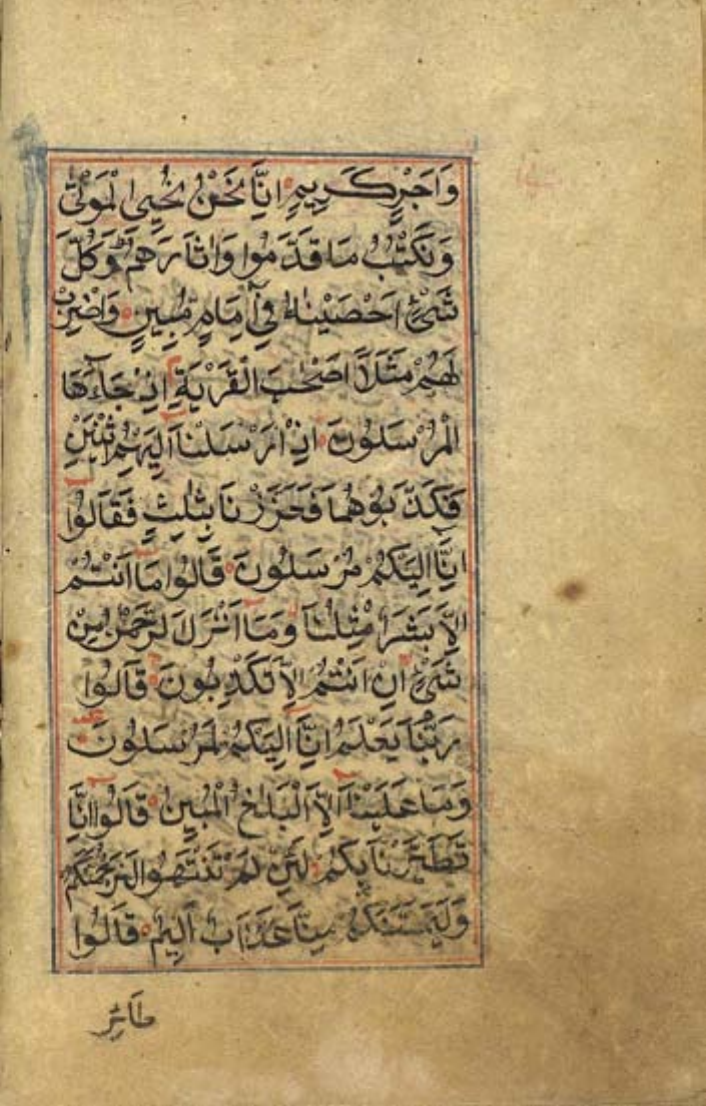 وَاَجْرٍ كَرِيمٍ اِنَّا نَحْنُ نُحْيِي الْمَوْتٰى
وَنَكْتُبُ مَا قَدَّمُوا وَاٰثَارَهُمْ وَكُلَّ
شَيْءٍ اَحْصَيْنٰهُ فِي اِمَامٍ مُبِينٍ وَاضْرِبْ
لَهُمْ مَثَلًا اَصْحٰبَ الْقَرْيَةِ اِذْ جَآءَهَا
الْمُرْسَلُونَ اِذْ اَرْسَلْنَا اِلَيْهِمُ اثْنَيْنِ
فَكَذَّبُوهُمَا فَعَزَّزْنَا بِثَالِثٍ فَقَالُوا
اِنَّا اِلَيْكُمْ مُرْسَلُونَ قَالُوا مَا اَنْتُمْ
اِلَّا بَشَرٌ مِثْلُنَا وَمَا اَنْزَلَ الرَّحْمٰنُ مِنْ
شَيْءٍ اِنْ اَنْتُمْ اِلَّا تَكْذِبُونَ قَالُوا
رَبُّنَا يَعْلَمُ اِنَّا اِلَيْكُمْ لَمُرْسَلُونَ
وَمَا عَلَيْنَا اِلَّا الْبَلٰغُ الْمُبِينُ قَالُوا اِنَّا
تَطَيَّرْنَا بِكُمْ لَئِنْ لَمْ تَنْتَهُوا لَنَرْجُمَنَّكُمْ
وَلَيَمَسَّنَّكُمْ مِنَّا عَذَابٌ اَلِيمٌ قَالُوا
طَائِرُ